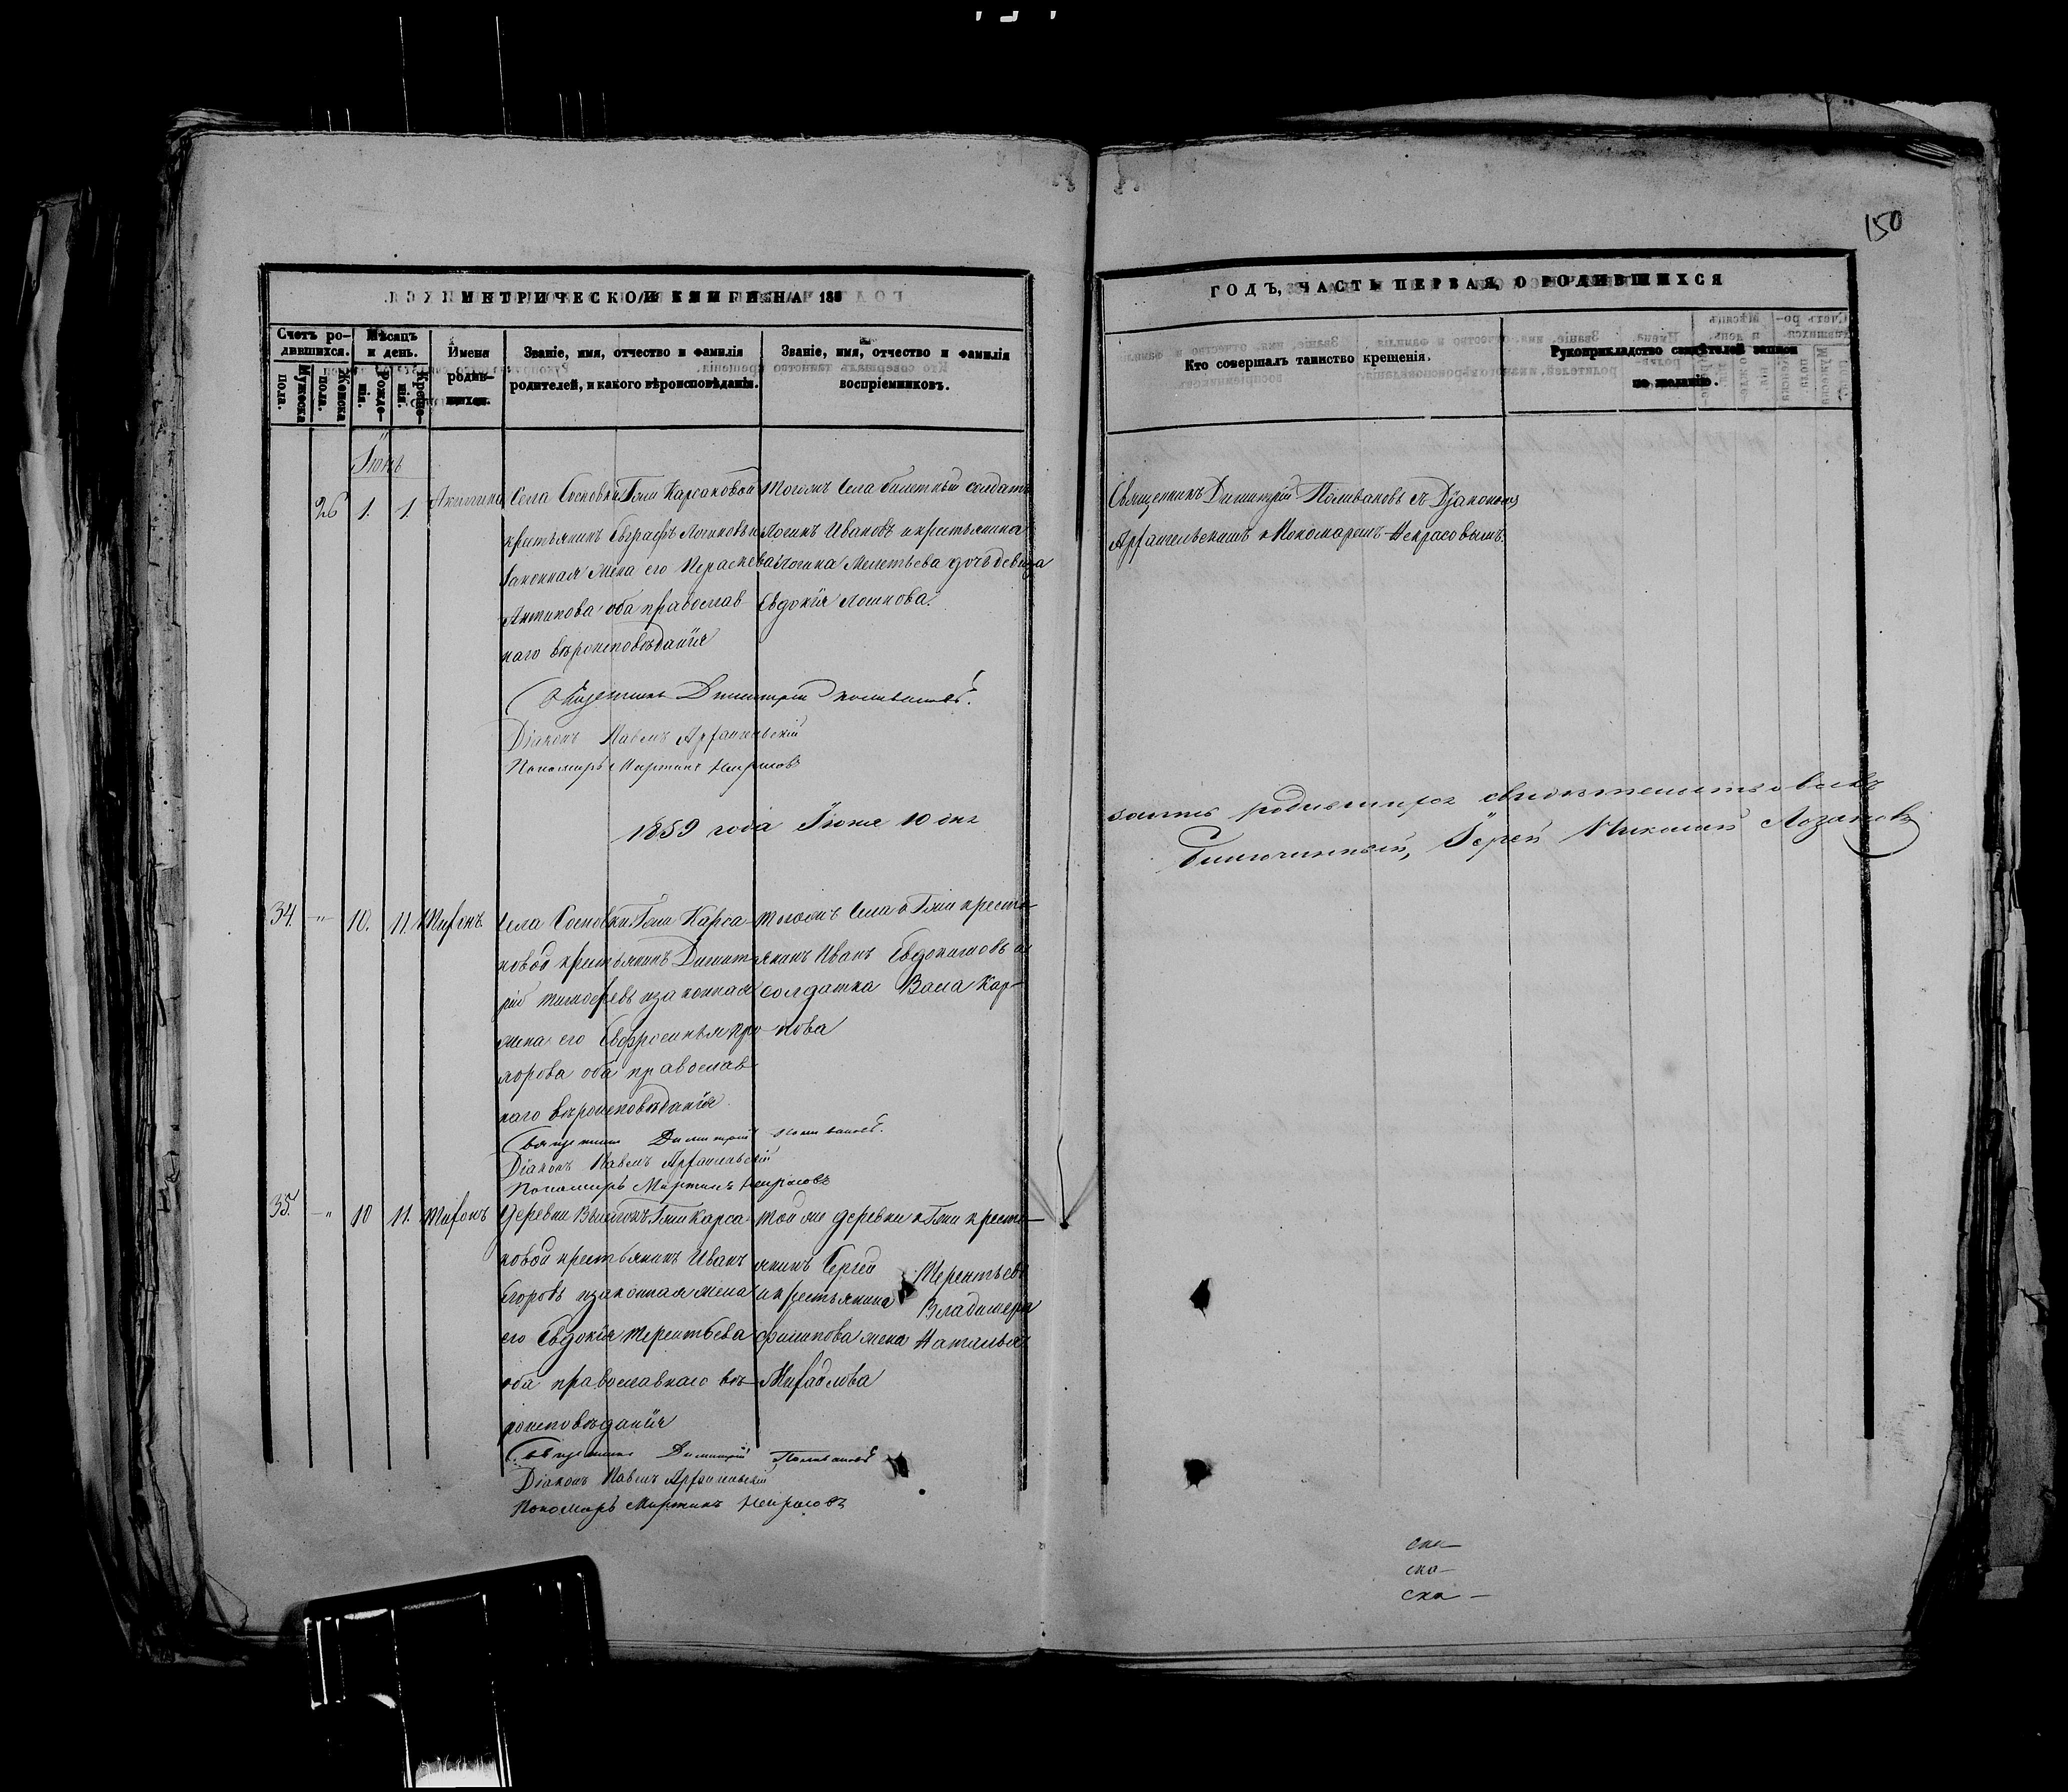 150
МЕТРИЧЕСКОЙ КНИГИ НА 185
ГОДЪ, ЧАСТЬ ПЕРВАЯ, О РОДИВШИХСЯ
Счетъ ро-
дившихся.
Мужеска
пола.
Женска
пола.
Мѣсяцъ
и день.
Рожде-
нія.
Креще-
нія.
Имена
родив-
шихся.
Званіе, имя, отчество и фамилія
родителей, и какого вѣроисповѣданія.
Званіе, имя, отчество и фамилія
воспріемниковъ.
Кто совершалъ таинство крещенія.
Рукоприкладство свидѣтелей записи
по желанію.
Іюнь
26 1. 1. Акилина
Села Сосновки Гжи Карсаковой
крестьянинъ Евграфъ Логиновъ и
законная жена его Пераскева
Антипова оба православ
наго вѣроисповѣданія
Тогожъ села билетный солдатъ
Логинъ Ивановъ и крестьянина
Логина Мелетьева дочь девица
Евдокія Логинова.
Священникъ Димитрій Поливановъ съ Діакономъ
Архангельскимъ и Пономаремъ Некрасовымъ.
Священникъ Димитрій Поливановъ.
Діаконъ Павелъ Архангельскій
Пономарь Мартинъ Некрасовъ
1859 года Іюня 10 дня
родившихся свидѣтельствовалъ
Благочинный, Іерей Николай Лозановъ
34. -"- 10. 11. Тихонъ.
Села Сосновки Гжи Карса
ковой крестьянинъ Димит
рій Тимофѣевъ и законная
жена его Евфросинья
оба православ
наго вѣроисповѣданія.
Тогожъ села и Гжи кресть
янинъ Иванъ Евдокимовъ и
солдатка Васа Кар-
пова
Священникъ Димитрій Поливановъ.
Діаконъ Павелъ Архангельскій
Пономарь Мартинъ Некрасовъ
35. -"- 10 11. Тихонъ
Деревни Гжи Карса
ковой крестьянинъ Иванъ
Егоровъ и законная жена
его Евдокія Терентьева
оба православнаго вѣ-
роисповѣданія
Той же деревни и Гжи кресть-
янинъ Сергей Терентьевъ
и крестьянина Владимера
Филипова жена Наталья
Михайлова
Священникъ Димитрій Поливановъ
Діаконъ Павелъ Архангельскій
Пономарь Мартинъ Некрасовъ